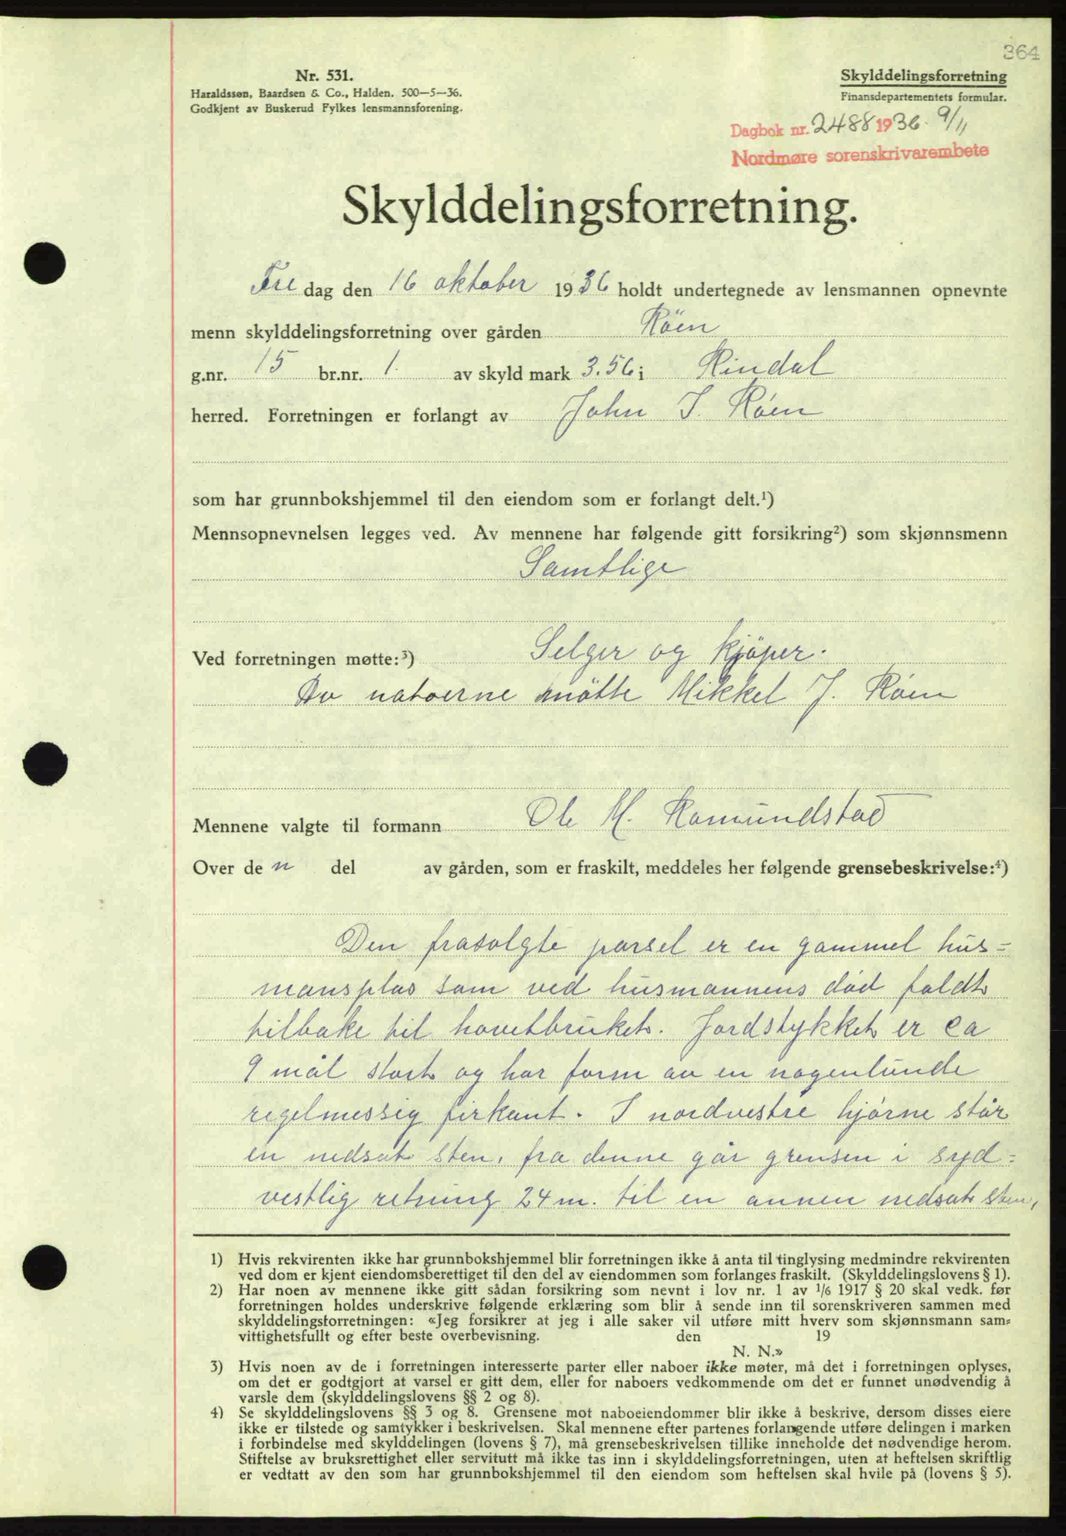 364
Nr. 531.
Haraldssøn, Baardsen & Co., Halden. 500—5—36.
Godkjent av Buskerud Fylkes lensmannsforening.
Skylddelingsforretning
Finansdepartementets formular.
Dagbok nr. 2488 1936 9/11
Nordmøre sorenskrivarembete
Skylddelingsforretning.
Fredag den 16 oktober 1936 holdt undertegnede av lensmannen opnevnte
menn skylddelingsforretning over gården Röen
g.nr. 15 br.nr. 1. av skyld mark 3.56 i Rindal
herred. Forretningen er forlangt av John J. Röen
som har grunnbokshjemmel til den eiendom som er forlangt delt.¹)
Mennsopnevnelsen legges ved. Av mennene har følgende gitt forsikring²) som skjønnsmenn
Samtlige
Ved forretningen møtte:³) Selger og kjöper.
Av naboerne mötte Mikkel J. Röen
Mennene valgte til formann Ole M. Romundstad
Over de n del av gården, som er fraskilt, meddeles her følgende grensebeskrivelse:⁴)
Den frasolgte parsel er en gammel hus=
mansplas som ved husmannens död faldt
tilbake til hovetbruket. Jordstykket er ca
9 mål stort og har form av en nogenlunde
regelmessig firkant. I nordvestre hjörne står
en nedsat sten, fra denne går grensen i syd=
vestlig retning 24 m. til en annen nedsat sten,
1) Hvis rekvirenten ikke har grunnbokshjemmel blir forretningen ikke å anta til tinglysing medmindre rekvirenten
ved dom er kjent eiendomsberettiget til den del av eiendommen som forlanges fraskilt. (Skylddelingslovens § 1).
2) Har noen av mennene ikke gitt sådan forsikring som nevnt i lov nr. 1 av ¹/₆ 1917 § 20 skal vedk. før
forretningen holdes underskrive følgende erklæring som blir å sende inn til sorenskriveren sammen med
skylddelingsforretningen: «Jeg forsikrer at jeg i alle saker vil utføre mitt hverv som skjønnsmann sam=
vittighetsfullt og efter beste overbevisning. den 19
N. N.»
3) Hvis noen av de i forretningen interesserte parter eller naboer ikke møter, må det i forretningen oplyses,
om det er godtgjort at varsel er gitt dem, eller for naboers vedkommende om det er funnet unødvendig å
varsle dem (skylddelingslovens §§ 2 og 8).
4) Se skylddelingslovens §§ 3 og 8. Grensene mot naboeiendommer blir ikke å beskrive, dersom disses eiere
ikke er tilstede og samtykker i beskrivelsen. Skal mennene efter partenes forlangende utføre delingen i marken
i forbindelse med skylddelingen (lovens § 7), må grensebeskrivelsen tillike inneholde det nødvendige herom.
Stiftelse av bruksrettighet eller servitutt må ikke tas inn i skylddelingsforretningen, uten at heftelsen skriftlig
er vedtatt av den som har grunnbokshjemmel til den eiendom som heftelsen skal hvile på (lovens § 5).